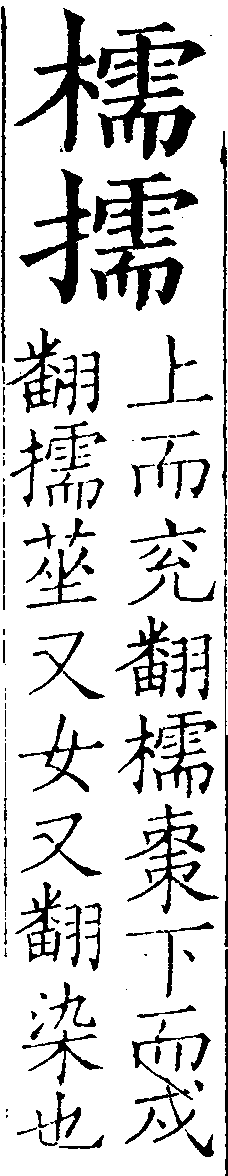 檽擩
上而兖翻檽棗下而戍
翻擩莝又女又翻染也